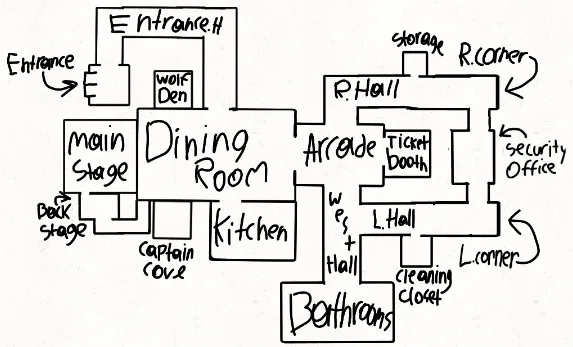 Entrance.H
Entrance
Wolf
Den
Storage
R.corner
R.Hall
Main
Stage
Dining
Room
Arcade
Ticket
booth
Security
Office
Back
stage
Captain
cove
Kitchen
West
Hall
L.Hall
L.corner
Cleaning
Closet
Bathrooms